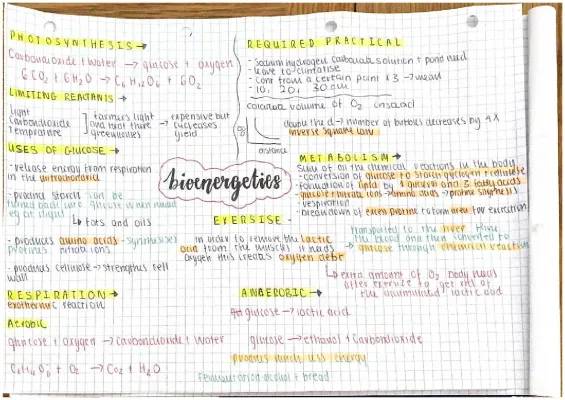 PHOTOSYNTHESIS →
Carbondioxide + Water → glucose + oxygen
6CO2 + 6H2O → C6H12O6 + 6O2
LIMITING REACTANTS →
light
Carbondioxide
Temperature
farmers light
and heat there
greenhouses
→ expensive but
increases
yield
USES OF GLUCOSE →
- release energy from respiration
in the mitochondria
- produce starch can be
glucose when need
eg at night
↳ fats and oils
- produces amino acids - synthesises
proteins nitrate ions
- produces cellulose → strengthens cell
wall
RESPIRATION →
exothermic reaction
Aerobic
glucose + oxygen → carbondioxide + water
C6H12O6 + O2 → CO2 + H2O
REQUIRED PRACTICAL
- Sodium hydrogen carbonate solution + pond weed
- leave to climatise
- Count from a certain point x 3 → mean
- 10, 20, 30 cm
calculate volume of O2 instead
distance
double the d → number of bubbles decreases by 4x
inverse square law
bioenergetics
METABOLISM →
Sum of all the chemical reactions in the body
- conversion of glucose to starch glycogen + cellulose
- formation of lipid by 1 glycerol and 3 fatty acids
- glucose + nitrate ions → amino acids → protein synthesis
- respiration
- breakdown of excess proteins to form urea for excretion
EXERSISE -
in order to remove the lactic
acid from the muscles it needs
oxygen this creates oxygen debt
transported to the liver
the blood and then converted to
glucose through chemical reaction
↳ extra amount of O2 body needs
after exercise to get rid of
the accumulated lactic acid
ANAEROBIC →
glucose → lactic acid
glucose → ethanol + Carbondioxide
produces much less energy
Fermentation alcohol + bread